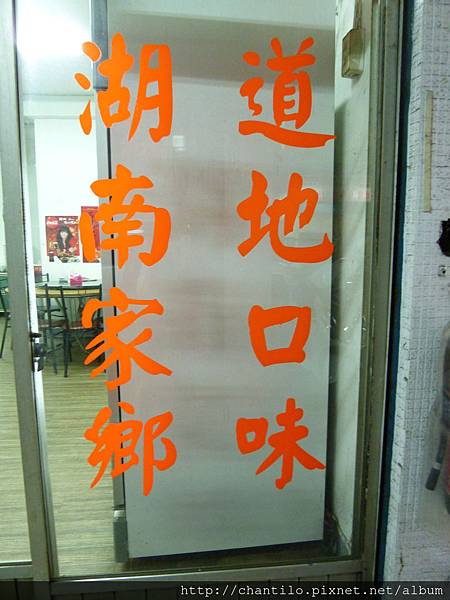 道地口味
湖南家鄉
http://chantilo.pixnet.net/album